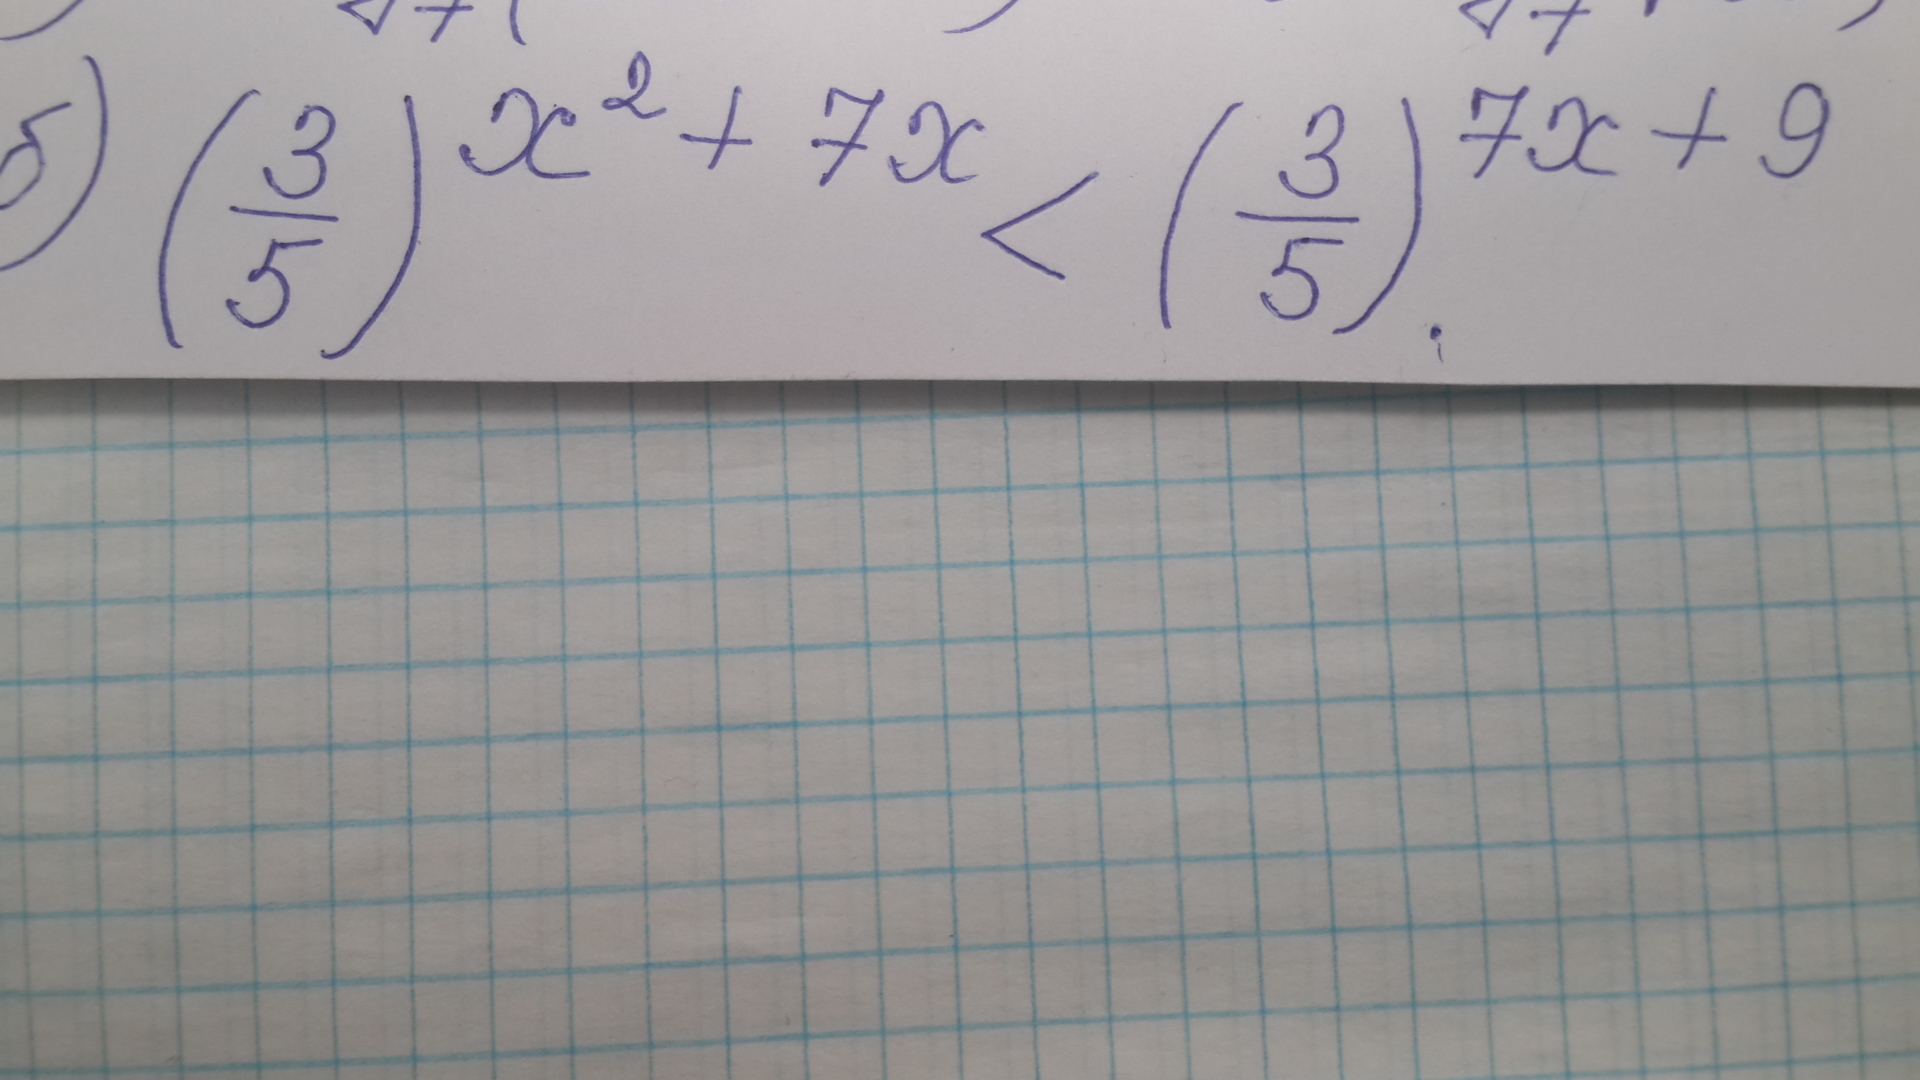 б) (3/5)^{x² + 7x} < (3/5)^{7x + 9}.